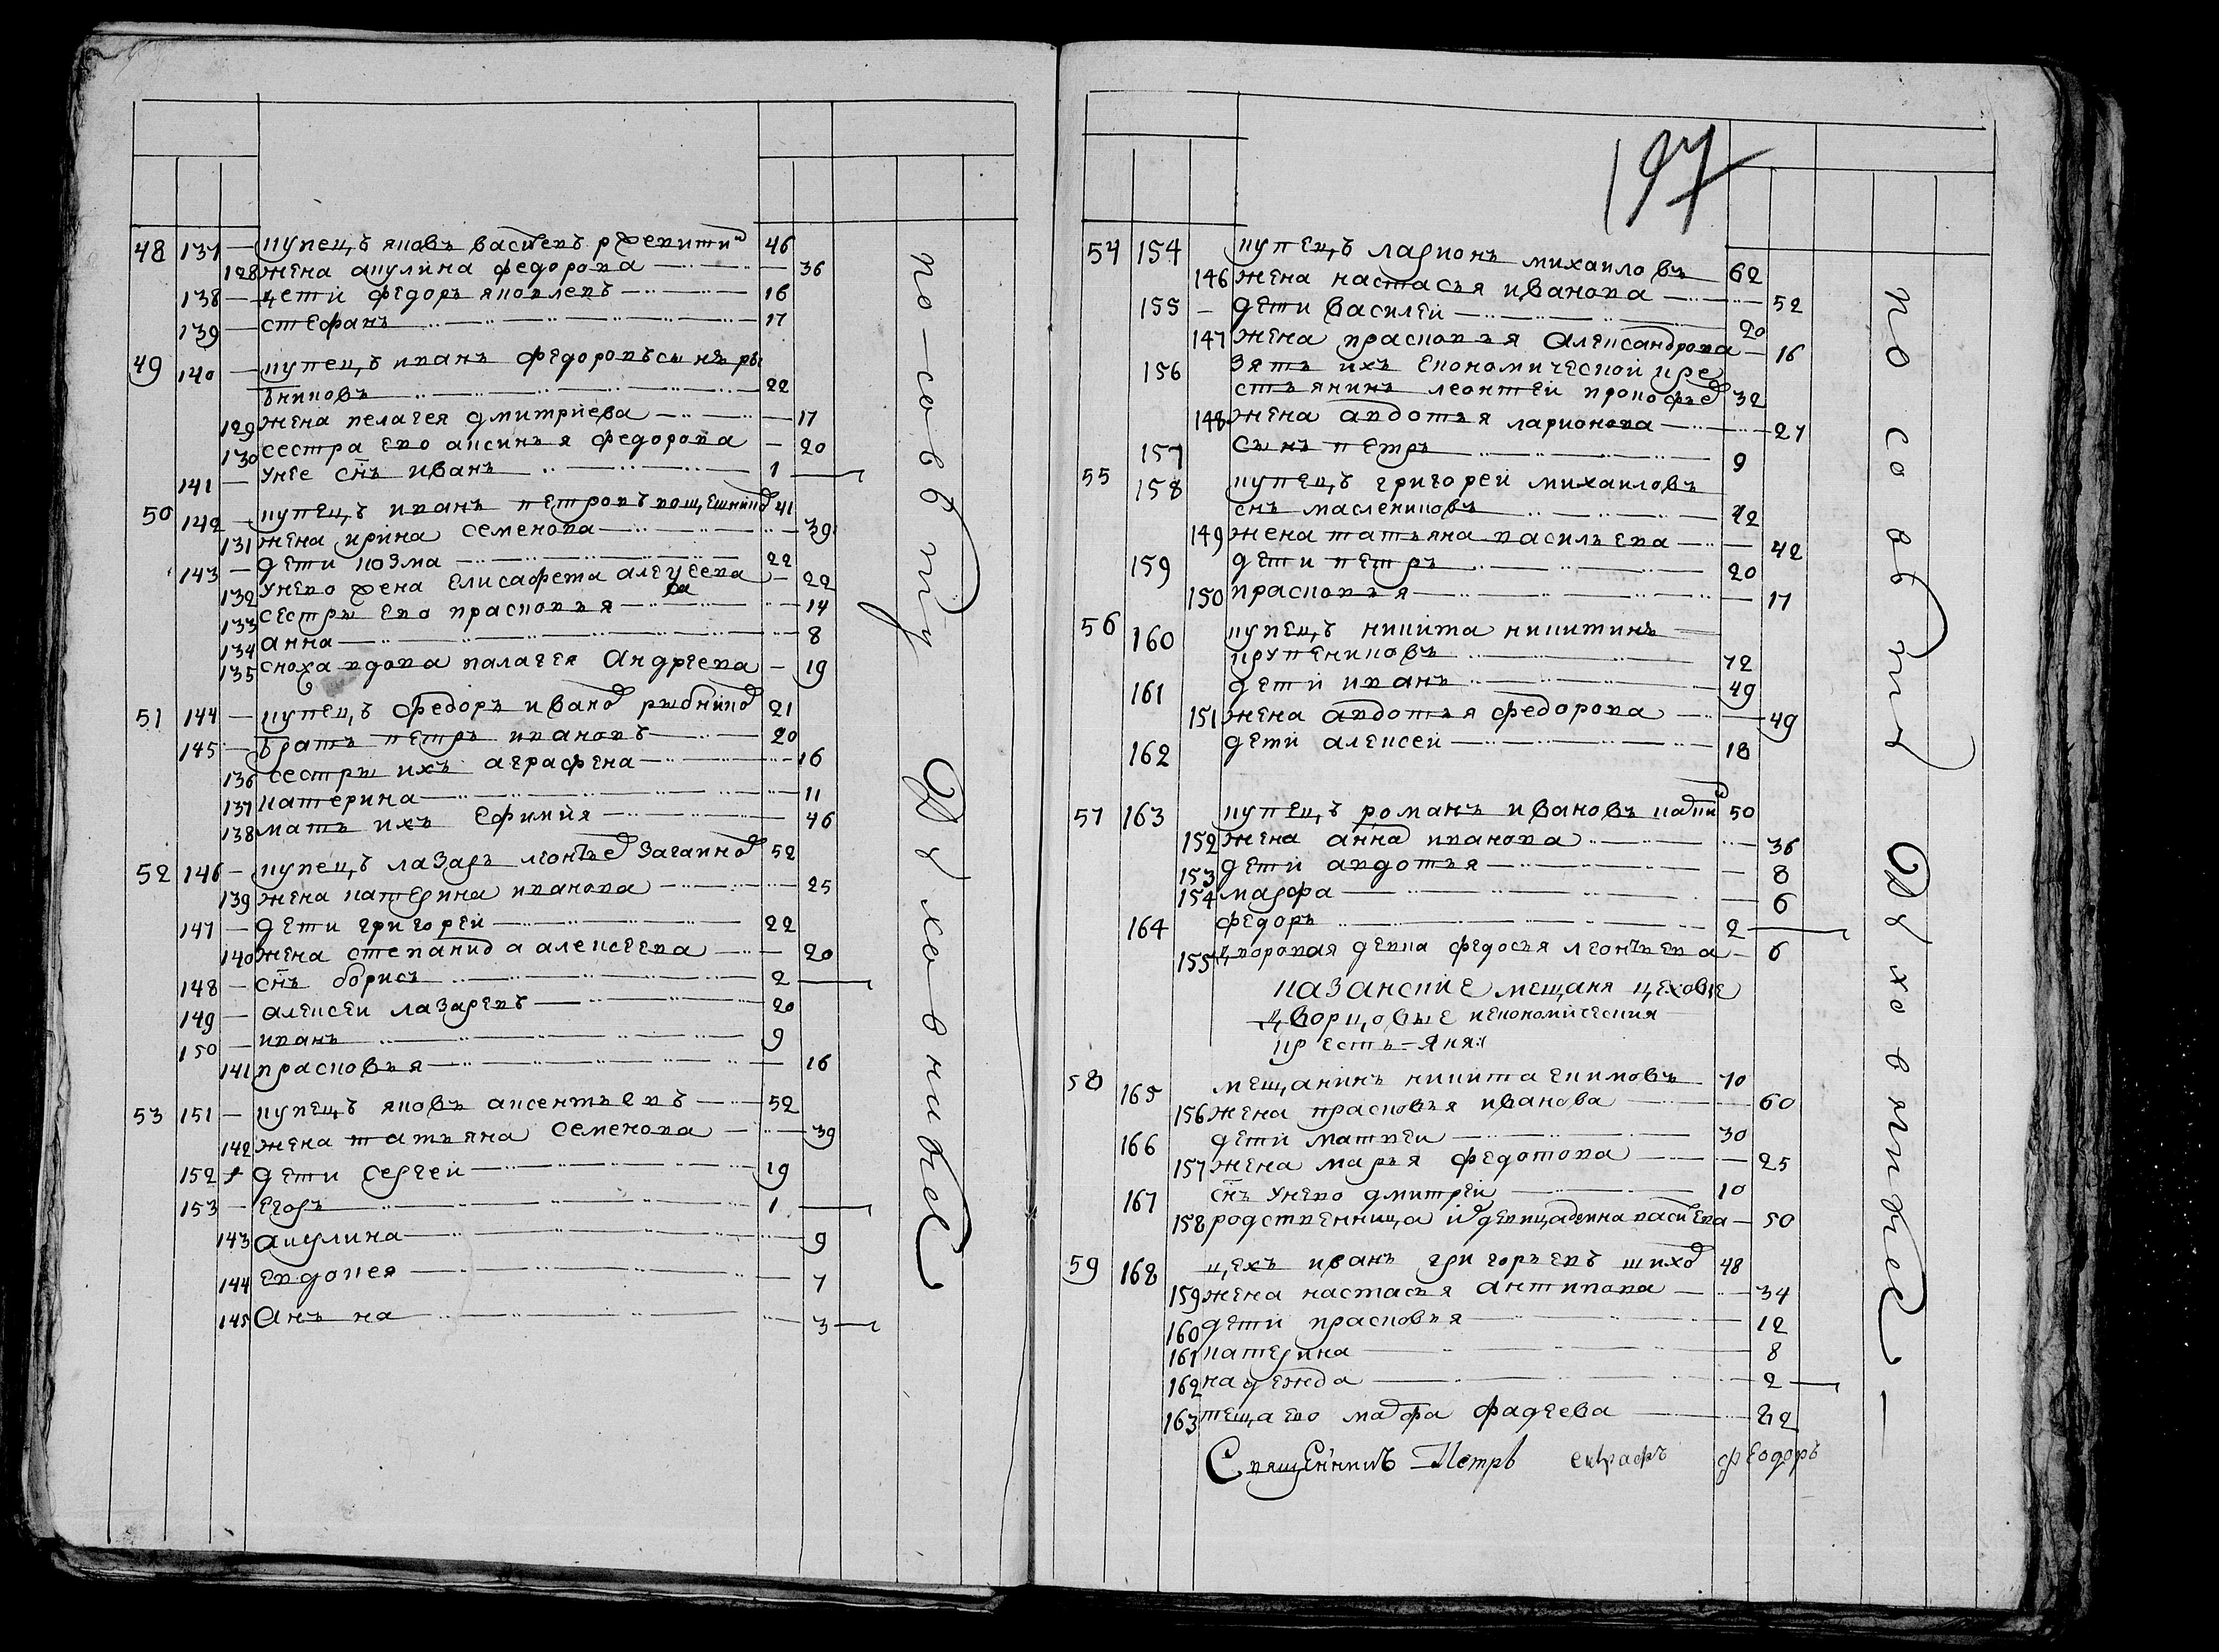 48 137 — купецъ яковъ василевъ рженитинъ 46
128 жена акулина федорова 36
138 — дети федоръ яковлевъ 16
139 — стефанъ 17
49 140 — купецъ иванъ федоровъ сынъ ры
бниковъ 22
129 жена пелагея дмитриева 17
130 сестра ево аксинья федорова 20
141 — унее снъ иванъ 1
50 142 — купецъ иванъ петровъ 41
131 жена ирина семенова 39
143 — дети козма 22
132 унево жена елисафета алеѯеева 22
133 сестры ево прасковья 14
134 анна 8
135 сноха вдова палагея андреева 19
51 144 — купецъ федоръ иванов рыбников 21
145 — братъ петръ ивановъ 20
136 сестры ихъ аграфена 16
137 катерина 11
138 мать ихъ ефимия 46
52 146 — купецъ лазарь леонтьев 52
139 жена катерина иванова 25
147 — дети григорей 22
140 жена степанида алексеева 20
148 — снъ борисъ 2
149 — алексеи лазаревъ 20
150 — иванъ 9
141 прасковья 16
53 151 — купецъ яковъ аксентьевъ 52
142 жена татьяна семенова 39
152 дети сергей 19
153 — егоръ 1
143 акулина 9
144 евдокея 7
145 анъна 3
по-совѣту Духовнике
197
54 154 купецъ ларионъ михаиловъ 62
146 жена настасья иванова 52
155 — дети василеи 20
147 жена прасковья александрова 16
156 зять ихъ економической кре
стьянинъ леонтей прокофьев 32
148 жена авдотья ларионова 27
157 сынъ петръ 9
55 158 купецъ григорей михаиловъ
снъ маслениковъ 42
149 жена татьяна васильева 42
159 дети петръ 20
150 прасковья 17
56 160 купецъ никита никитинъ
крупениковъ 72
161 дети иванъ 49
151 жена авдотья федорова 49
162 дети алексеи 18
57 163 купецъ романъ ивановъ 50
152 жена анна иванова 36
153 дети авдотья 8
154 марфа 6
164 федоръ 2
155 дворовая девка федосья леонтьева 6
казанские мещаня цеховые
дворцовые иекономическия
крестьяня:
58 165 мещанинъ никита екимовъ 70
156 жена прасковья иванова 60
166 дети матвеи 30
157 жена марья федотова 25
167 снъ унево дмитрей 10
158 родственница 50
59 168 цехъ иванъ григорьевъ 48
159 жена настасья антипова 34
160 дети прасковья 12
161 катерина 8
162 надежда 2
163 теща ево марфа фадеева
Священникъ Петръ евграфъ феодоръ
по совѣту Духовнике —